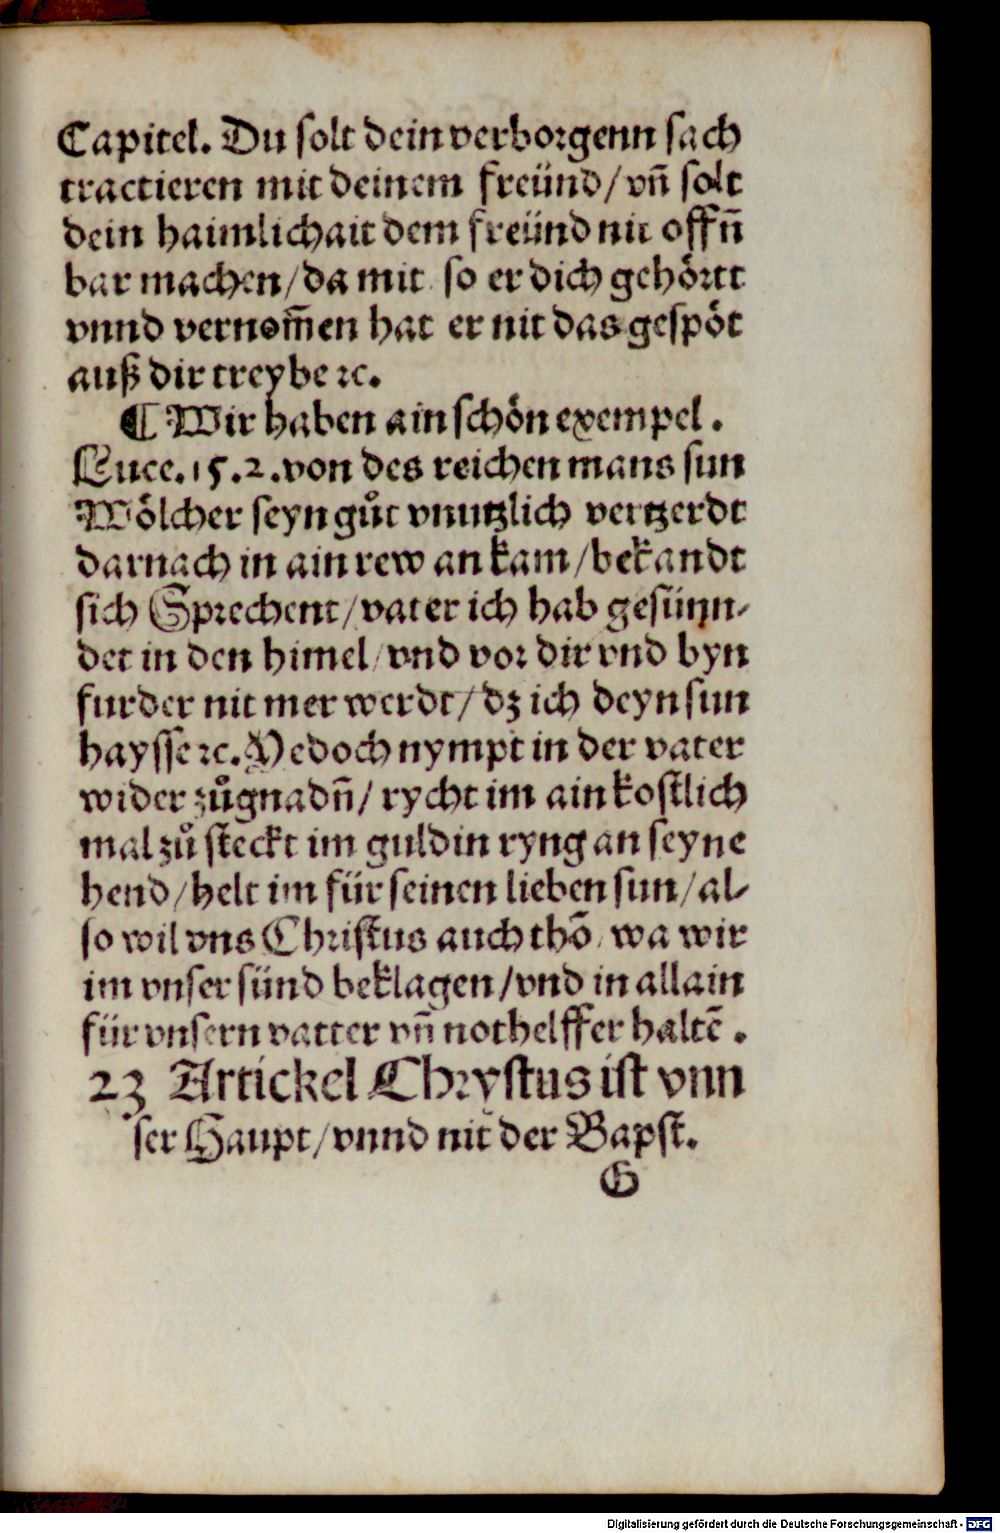 Capitel. Du solt dein verborgenn sach
tractieren mit deinem freünd/ vñ solt
dein haimlichait dem freünd nit offñ
bar machen/ da mit so er dich gehörtt
vnnd vernom̄en hat er nit das gespöt
auß dir treybe ⁊c.
¶ Wir haben ain schön exempel.
Luce. 15. 2. von des reichen mans sun
Wölcher seyn gůt vnutzlich vertzerdt
darnach in ain rew an kam/ bekandt
sich Sprechent/ vater ich hab gesünn-
det in den himel/ vnd vor dir vnd byn
furder nit mer werdt/ dz ich deyn sun
haysse ⁊c. Yedoch nympt in der vater
wider zůgnadñ/ rycht im ain kostlich
mal zů steckt im guldin ryng an seyne
hend/ helt im für seinen lieben sun/ al-
so wil vns Christus auch thō/ wa wir
im vnser sünd beklagen/ vnd in allain
für vnsern vatter vñ nothelffer haltē.
23 Artickel Chrystus ist vnn
ser Haupt/ vnnd nit der Bapst.
G
Digitalisierung gefördert durch die Deutsche Forschungsgemeinschaft - DFG